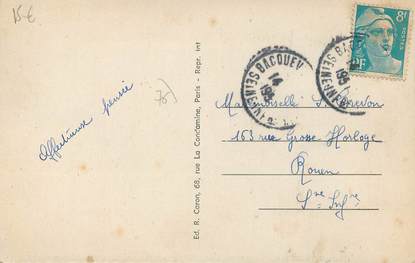 15 €
Affectueuse pensée
76)
Ed. R. Caron, 68, rue La Condamine, Paris - Repr. int
BACQUEV
SEINE INF
14
195
8F
POSTES
RF
Mademoiselle S.
163 rue Grosse Horloge
Rouen
Sne Infre